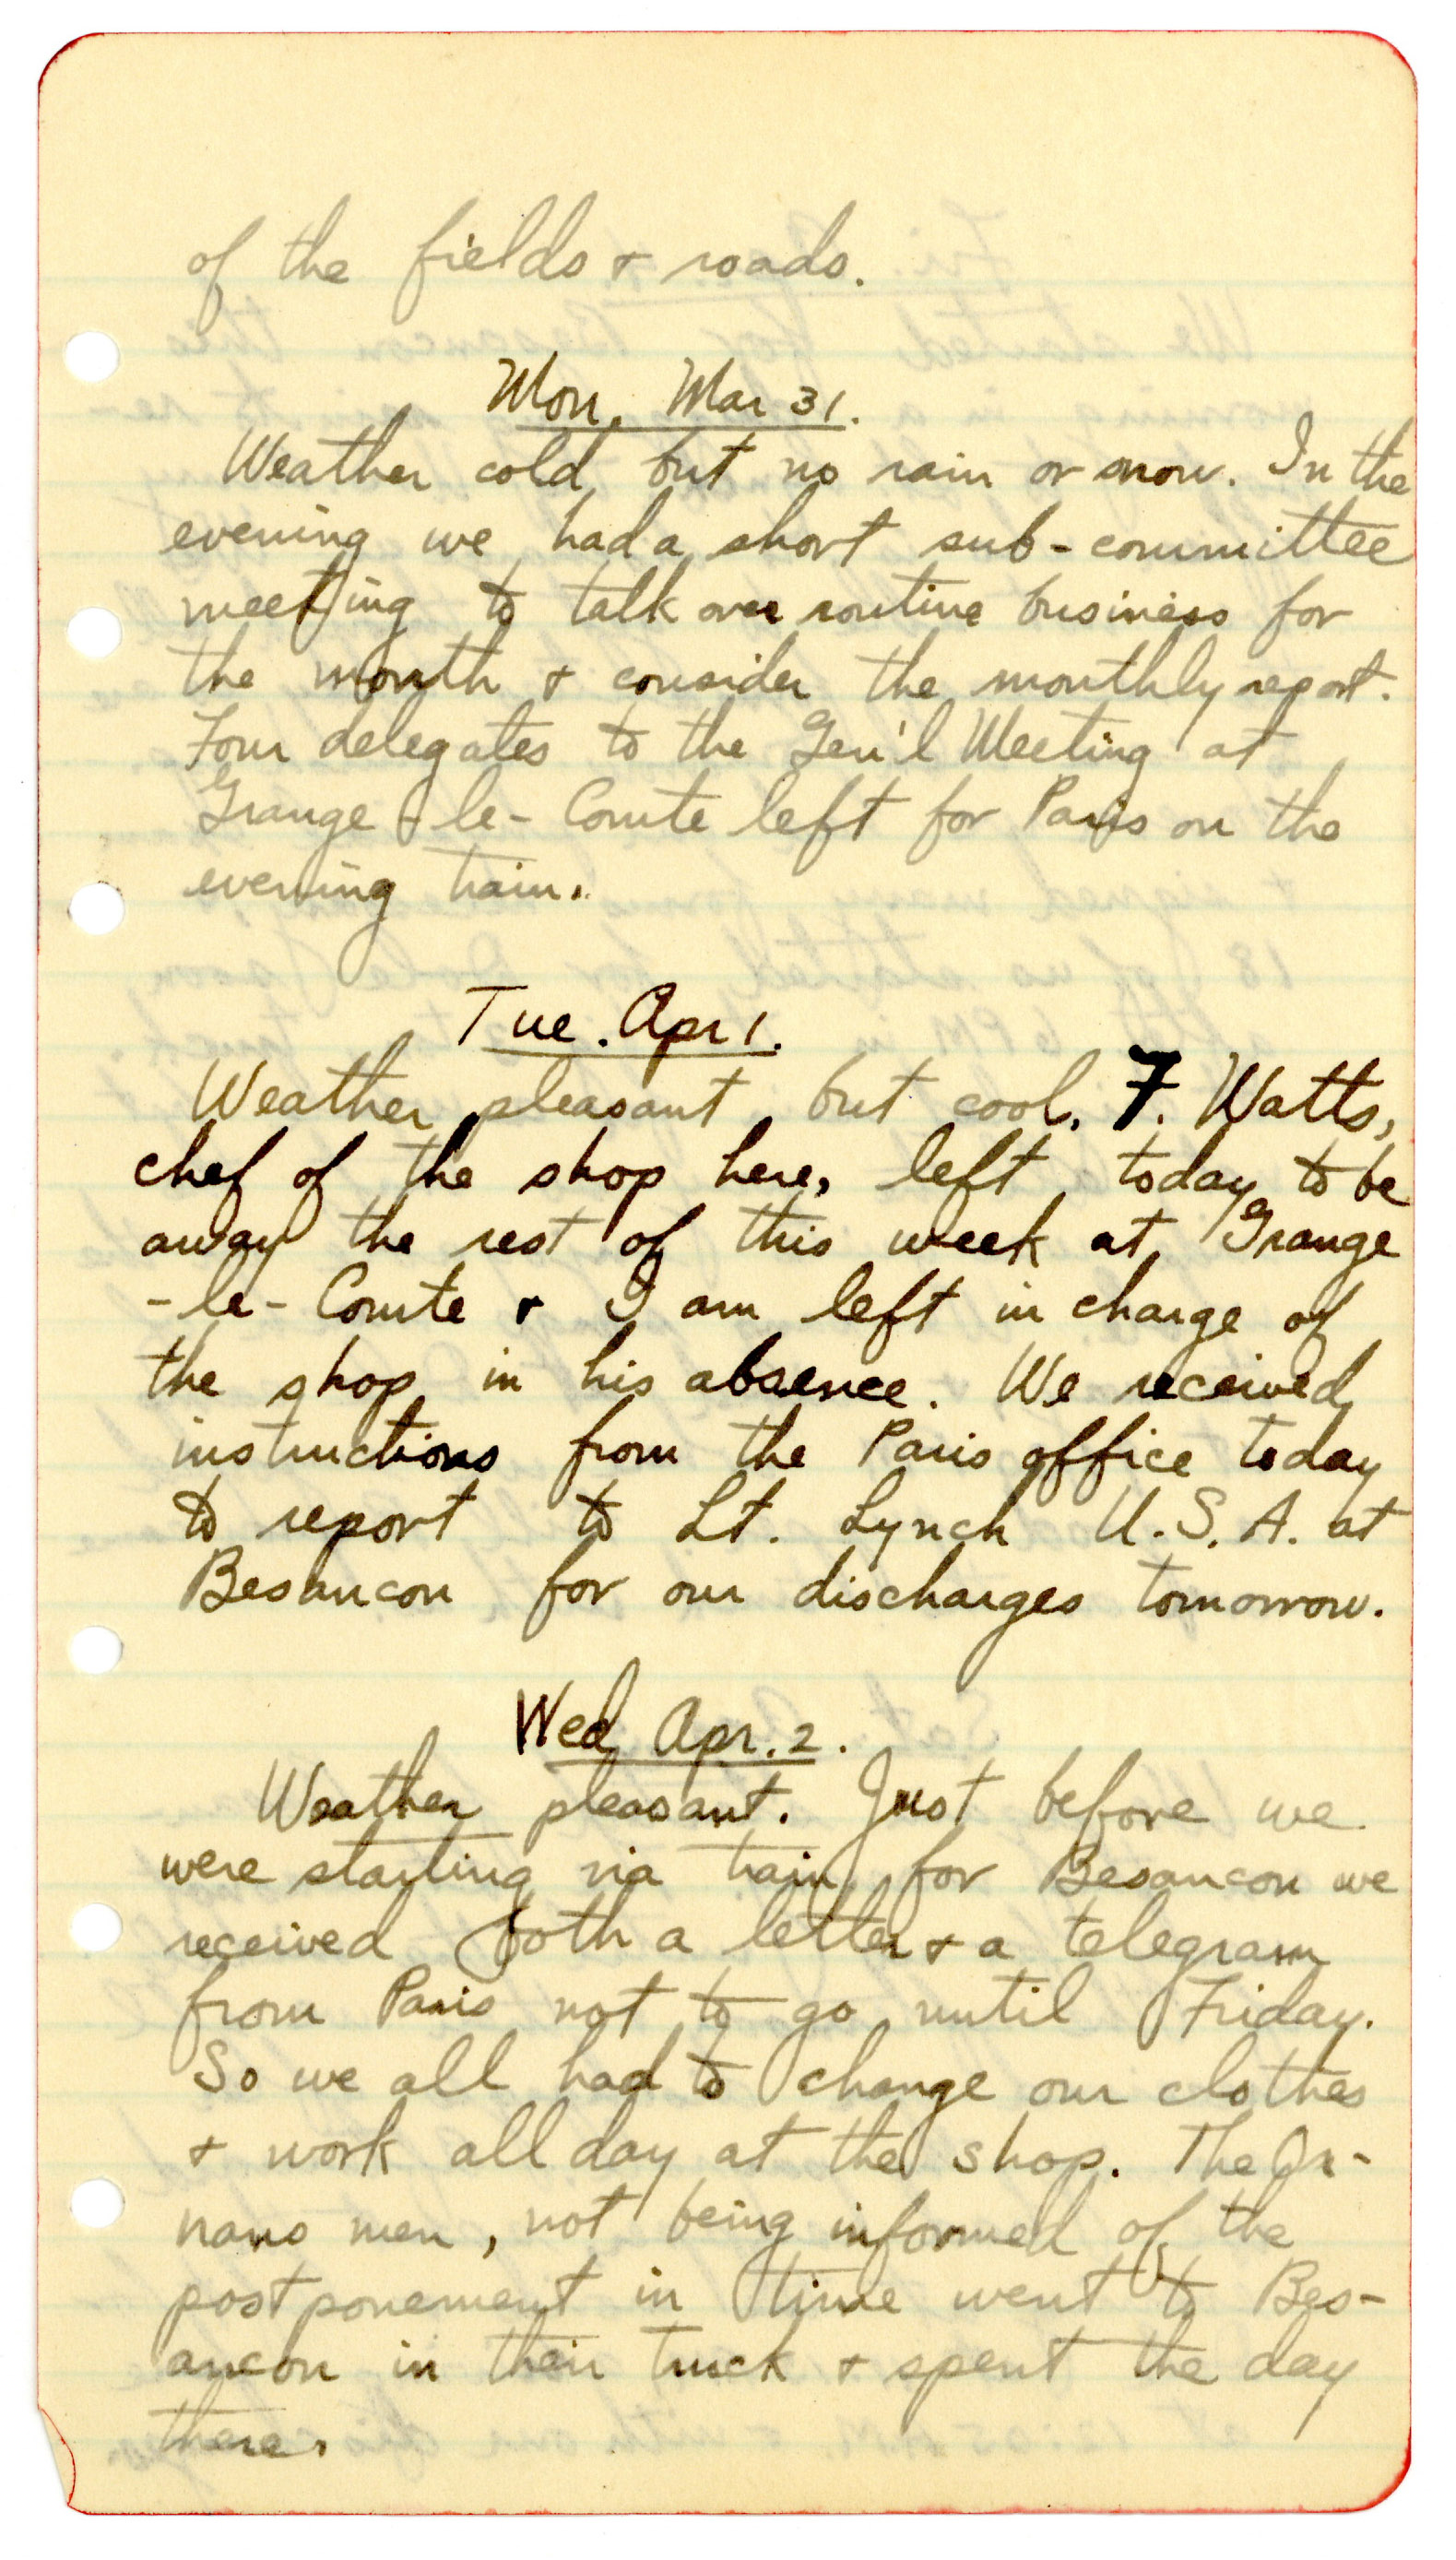 of the fields & roads.
Mon. Mar 31.
Weather cold but no rain or snow. In the
evening we had a short sub-committee
meeting to talk over routine business for
the month & consider the monthly report.
Four delegates to the Gen'l Meeting at
Grange-le-Comte left for Paris on the
evening train.
Tue. Apr 1.
Weather pleasant but cool. F. Watts,
chef of the shop here, left today to be
away the rest of this week at Grange
-le-Comte & I am left in charge of
the shop in his absence. We received
instructions from the Paris office today
to report to Lt. Lynch U.S.A. at
Besancon for our discharges tomorrow.
Wed Apr. 2.
Weather pleasant. Just before we
were starting via train for Besancon we
received both a letter & a telegram
from Paris not to go until Friday.
So we all had to change our clothes
& work all day at the shop. The Or-
nans men, not being informed of the
postponement in time went to Bes-
ancon in their truck & spent the day
there.